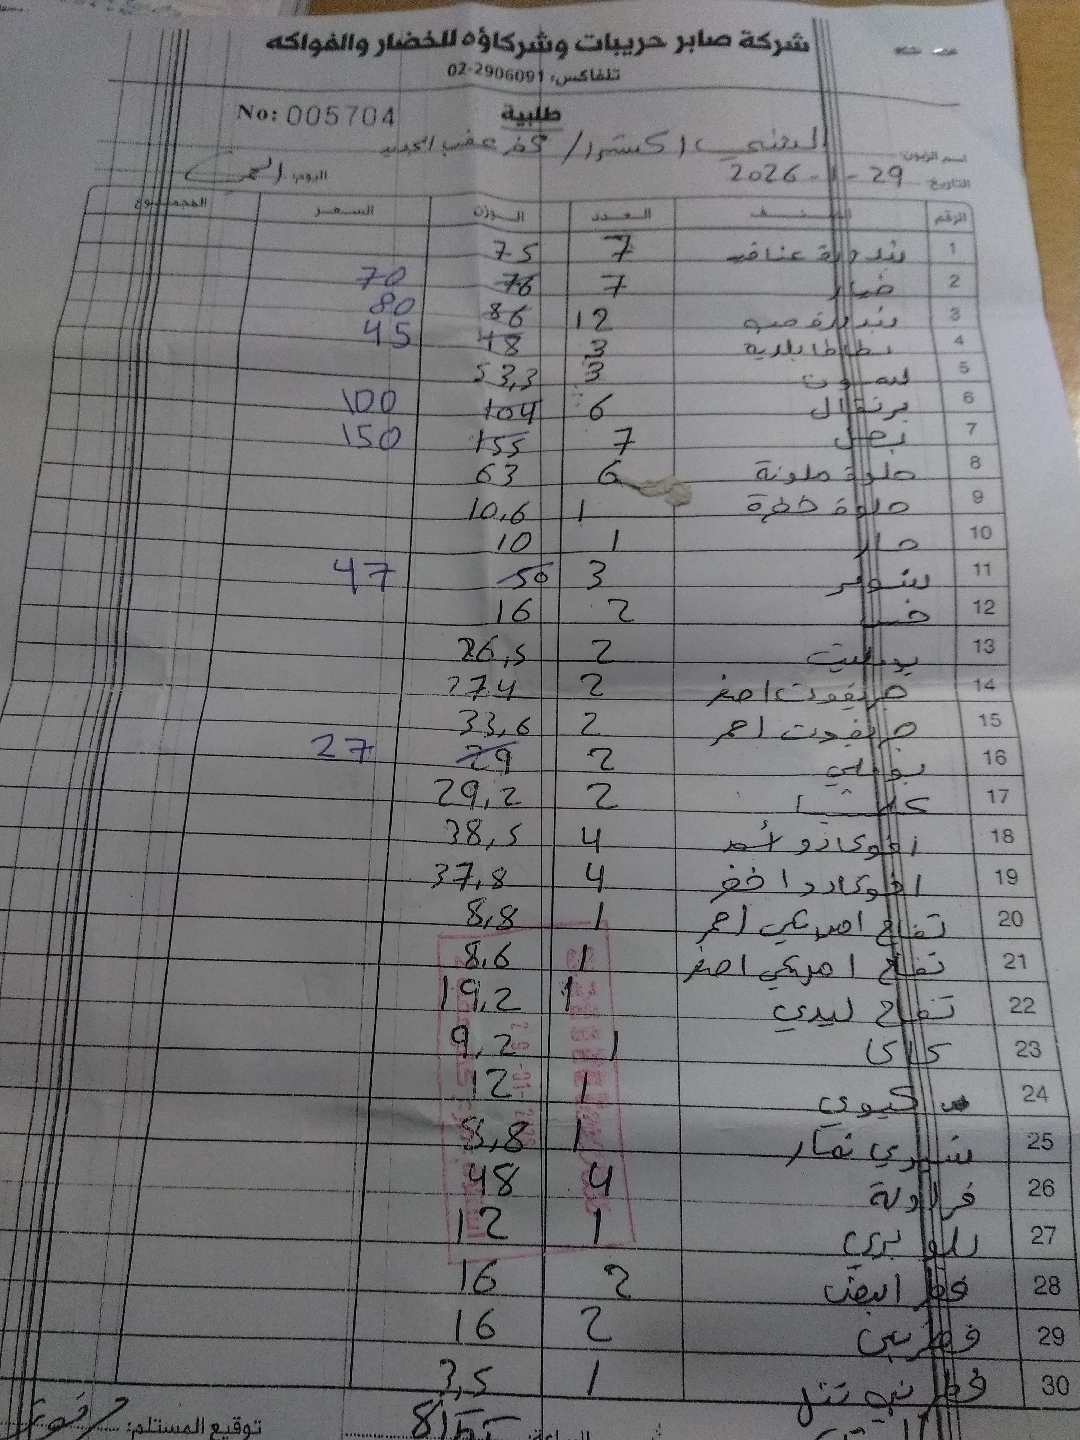 شركة صابر حريبات وشركاؤه للخضار والفواكه
تلفاكس: 02-2906091
طلبية
No: 005704
اسم الزبون: اكسترا / كفر عقب الجديد
التاريخ: 29-1-2026 اليوم:
الرقم الصنف العدد الوزن السعر المجموع
1 بندورة عناقيد 7 75
2 خيار 7 76 70
3 بندورة 12 86 80
4 بطاطا بلدية 3 48 45
5 ليمون 3 53,3
6 برتقال 6 104 100
7 بصل 7 155 150
8 حلوة ملونة 6 63
9 حلوة خضرة 1 10,6
10 حار 1 10
11 3 50 47
12 خس 2 16
13 2 26,5
14 جريفوت اصفر 2 27,4
15 جريفوت احمر 2 33,6
16 بوملي 2 29 27
17 2 29,2
18 افوكادو 4 38,5
19 افوكادو اخضر 4 37,8
20 تفاح امريكي احمر 1 8,8
21 تفاح امريكي اصفر 1 8,6
22 تفاح ليدي 1 19,2
23 كاكا 1 9,2
24 كيوي 1 12
25 شيري 1 8,8
26 فراولة 4 48
27 بلو بري 1 12
28 فطر ابيض 2 16
29 فطر بني 2 16
30 فطر 1 3,5
توقيع المستلم: